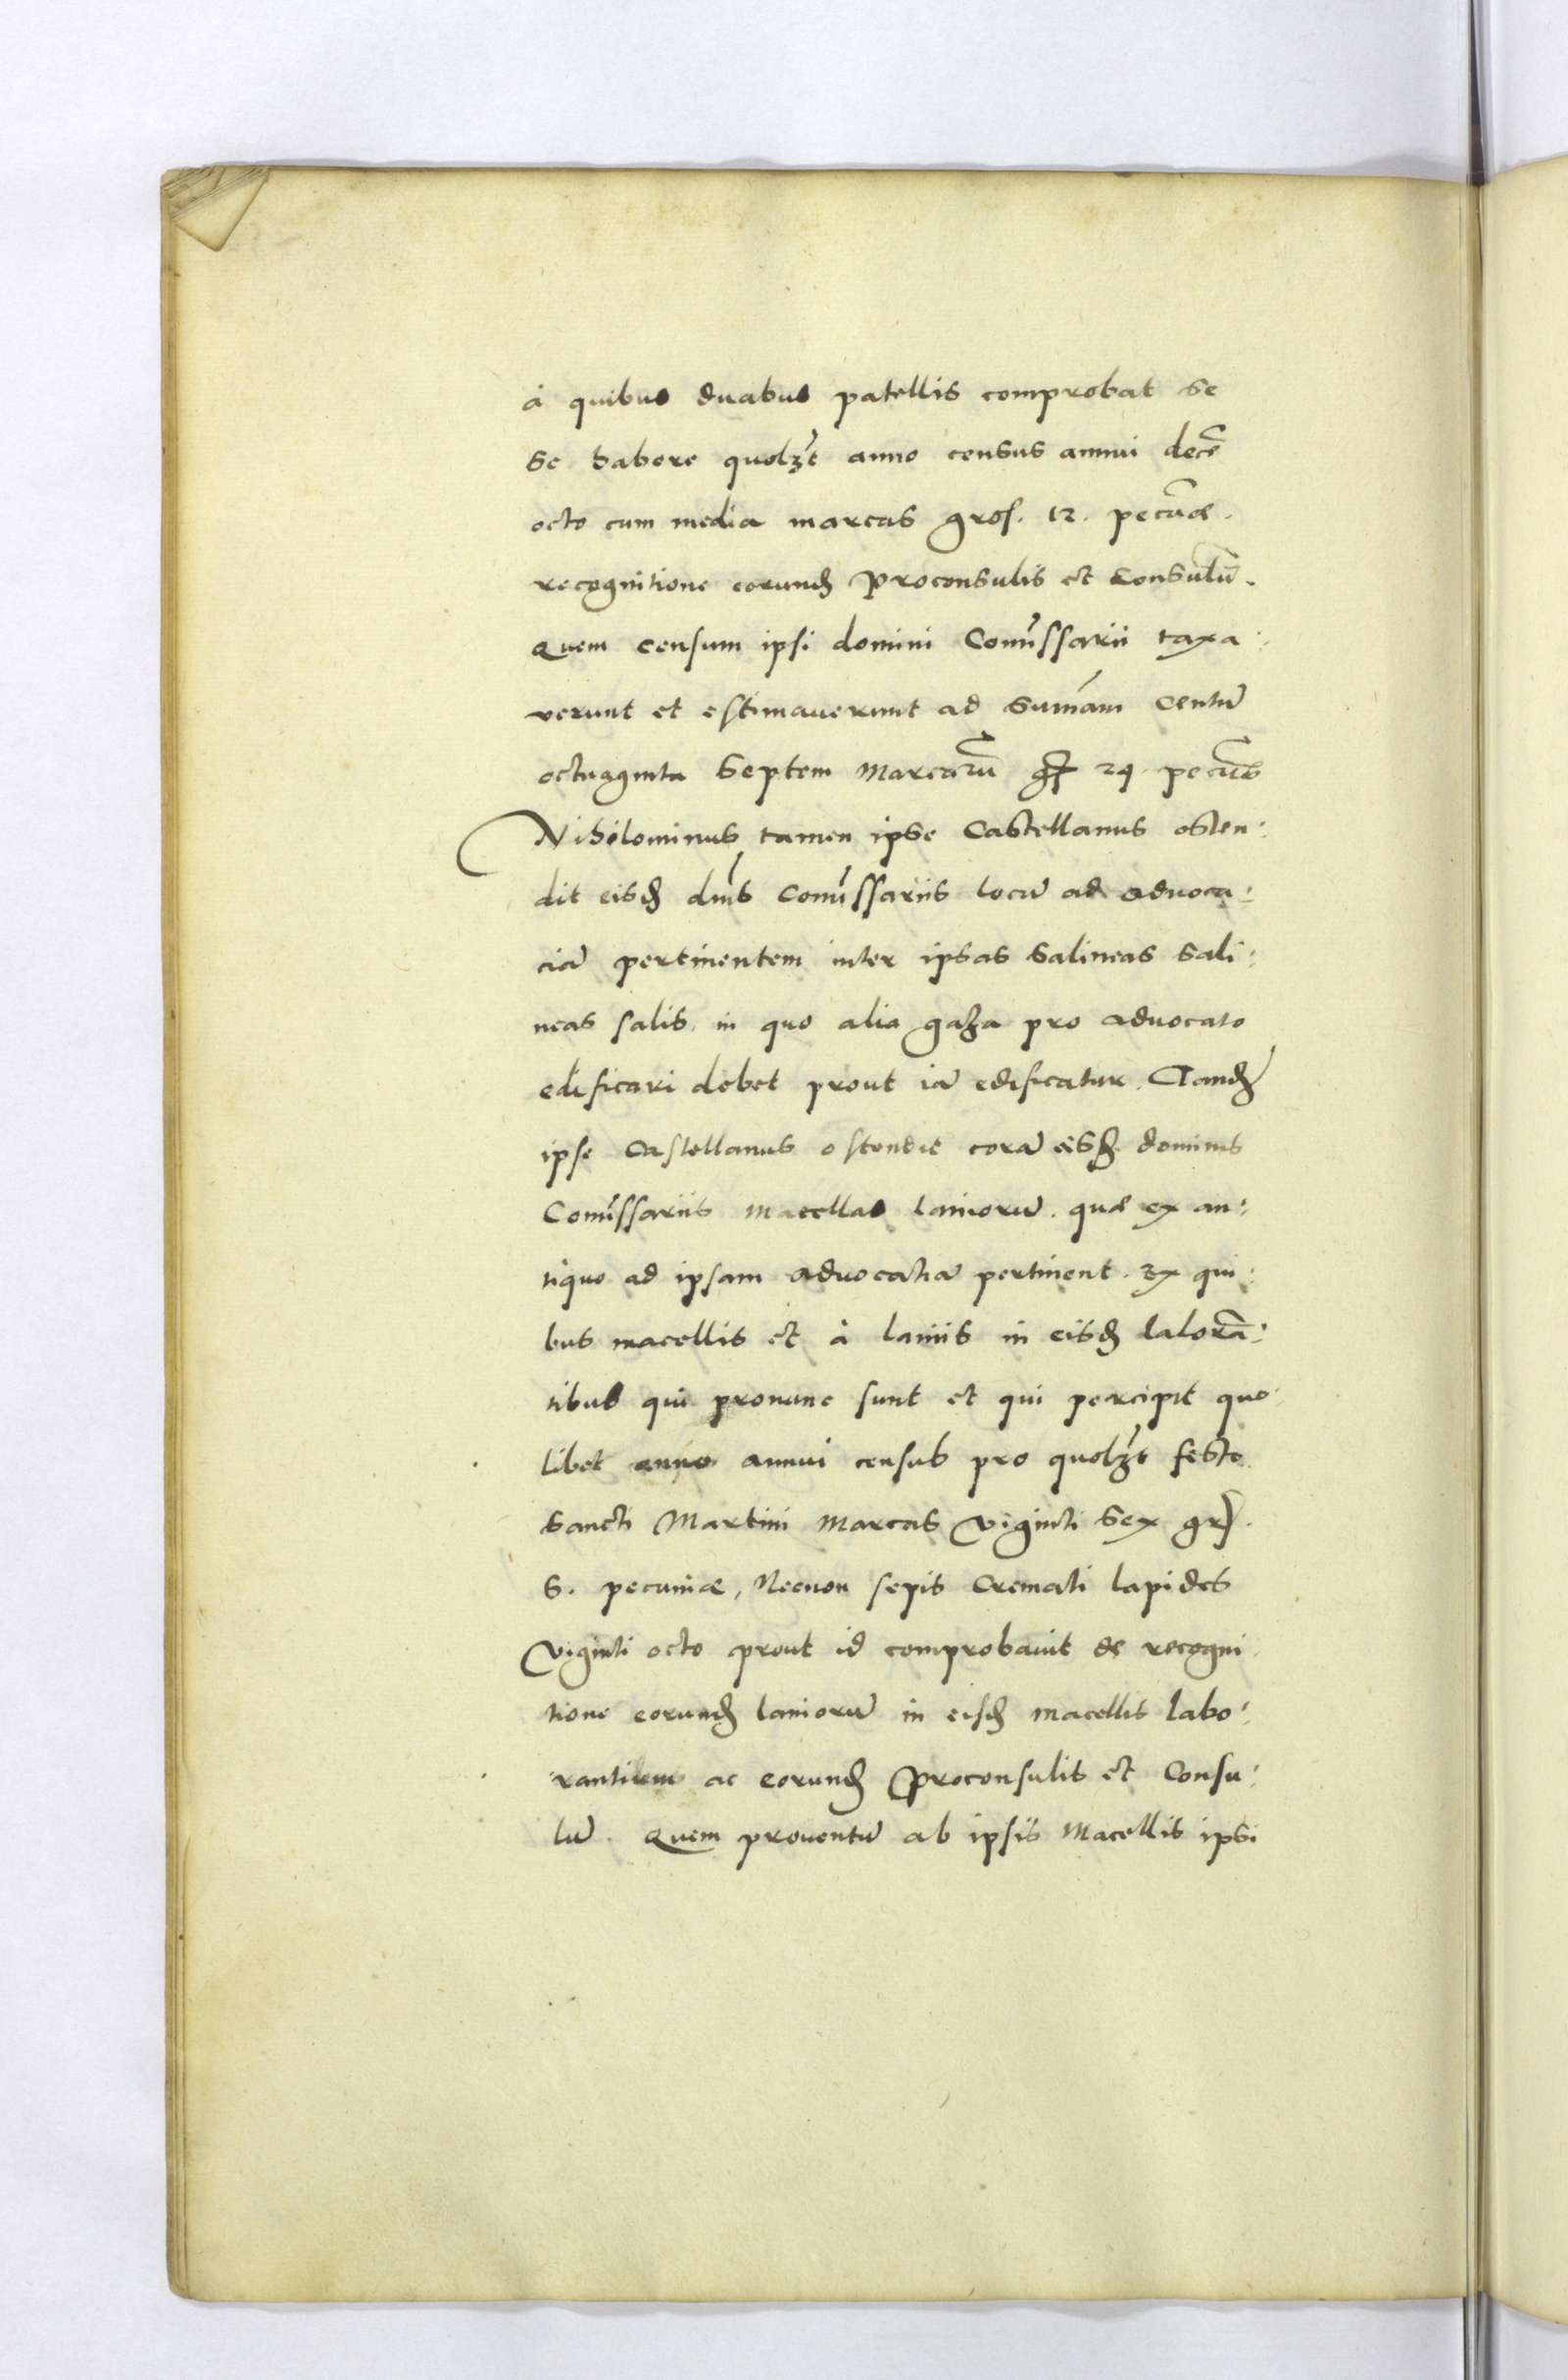 à quibus duabus patellis comprobat se
se habere quolꝫt anno census annui decē
octo cum media marcas gros. 12. pecūæ.
recognitione eorunđ Proconsulis et Consulū.
Quem censum ipsi domini Comissarii taxa:
verunt et estimaverunt ad sumam Centū
octuaginta septem Marcarū gſ 24 pecūs
Nihilominus tamen ipse Castellanus osten:
dit eisđ dnīs Comissariis locū ad advoca:
ciā pertinentem inter ipsas salineas sali:
neas salis. in quo alia gaza pro advocato
edificari debet prout iā edificatur. Tandē
ipse Castellanus ostendit corā eisđ dominis
Comissariis Macellas laniorū. quæ ex an:
tiquo ad ipsam advocatiā pertinent. Ex qui:
bus macellis et à laniis in eisđ laborā:
tibus qui pronunc sunt et qui percipit quo
libet anno annui census pro quolꝫt festo
sancti Martini Marcas Viginti sex gr
6. pecuniæ, Necnon sepis Cremati lapides
Viginti octo prout id comprobavit de recogni
tione eorunđ laniorū in eisđ Macellis labo:
rantium ac eorunđ Proconsulis et Consu:
lū. Quem proventū ab ipsis Macellis ipsi